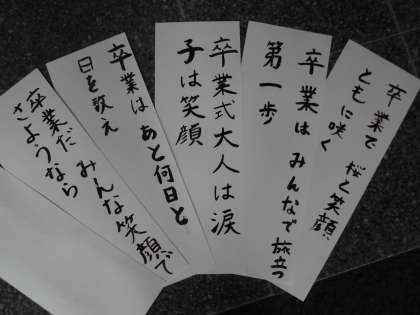 卒業で 桜と笑顔
ともに咲く
卒業は みんなで旅立つ
第一歩
卒業式大人は涙
子は笑顔
卒業は あと何日と
日を数え
卒業だ みんな笑顔で
さようなら